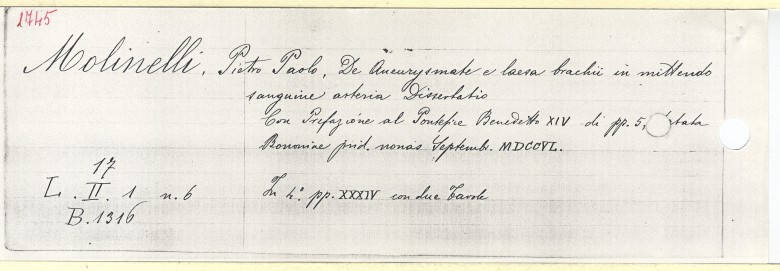 1745
Molinelli, Pietro Paolo, De Aneurysmate e laesa brachii in mittendo
sanguine arteria Dissertatio
Con Prefazione al Pontefice Benedetto XIV di pp. 5,
Bononiae prid. nonas Septemb. MDCCVL.
17
L. II. 1 n. 6
In 4.° pp. XXXIV con due Tavole
B. 1316